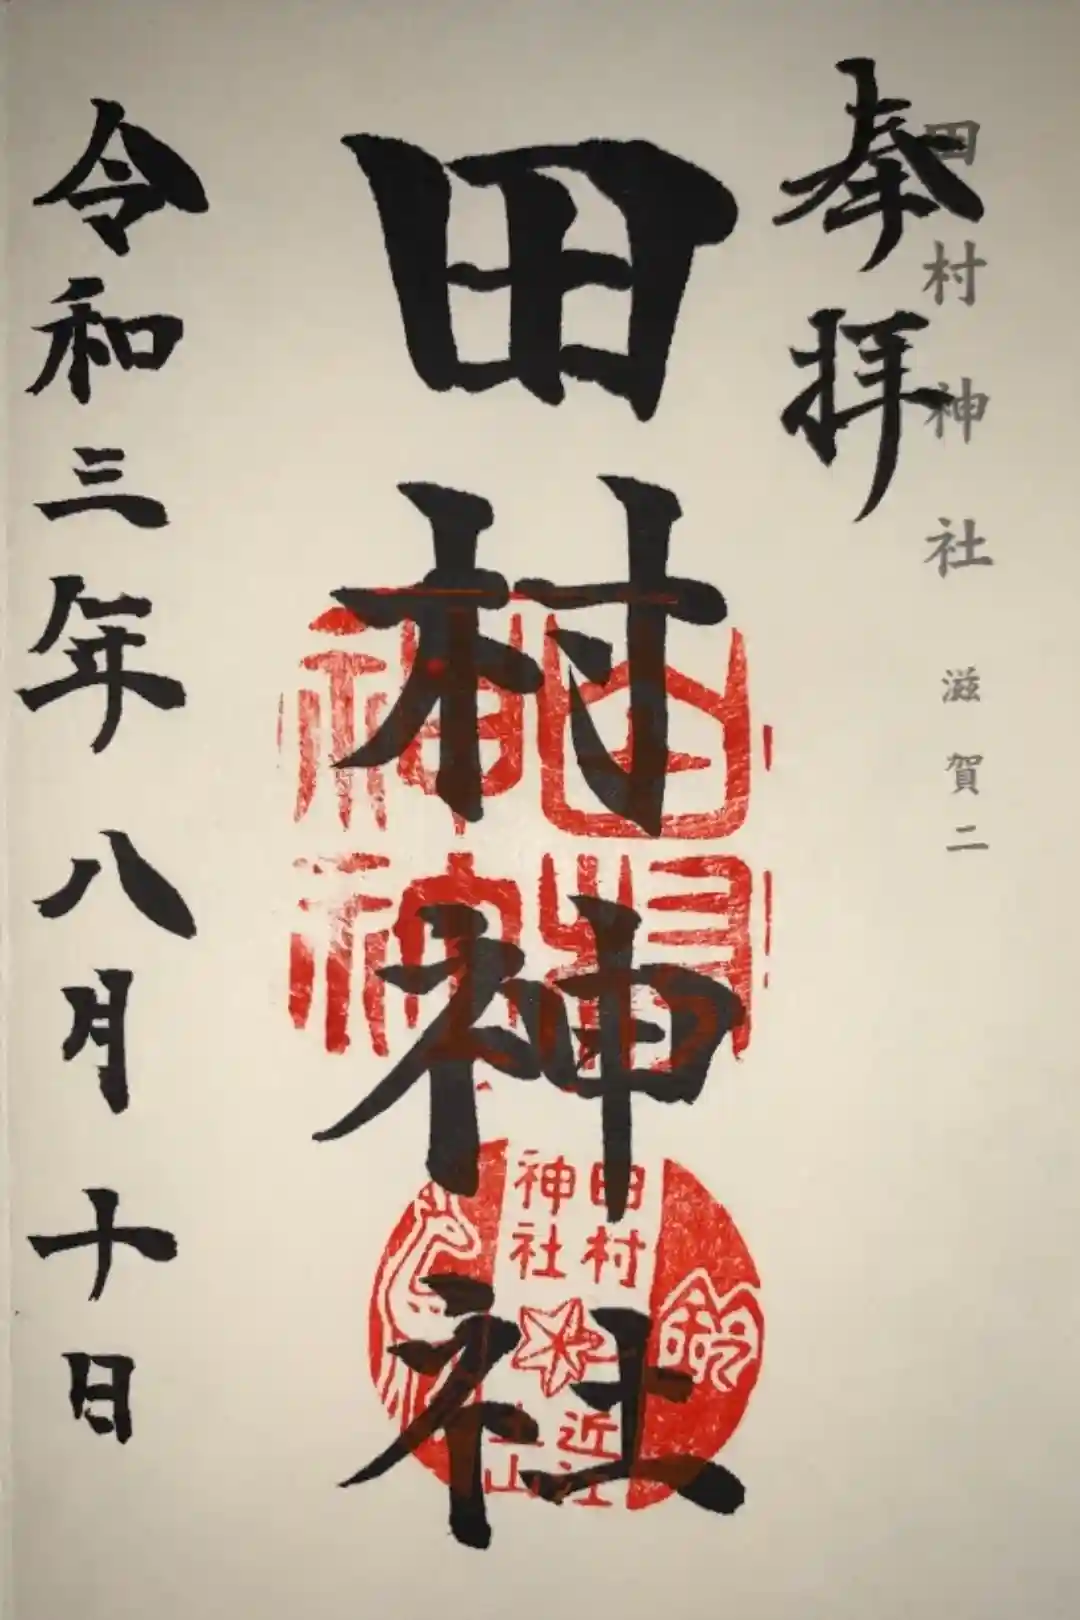 田村神社 滋賀二
奉拝
田村神社
田村
神社
近江
土山
令和三年八月十日